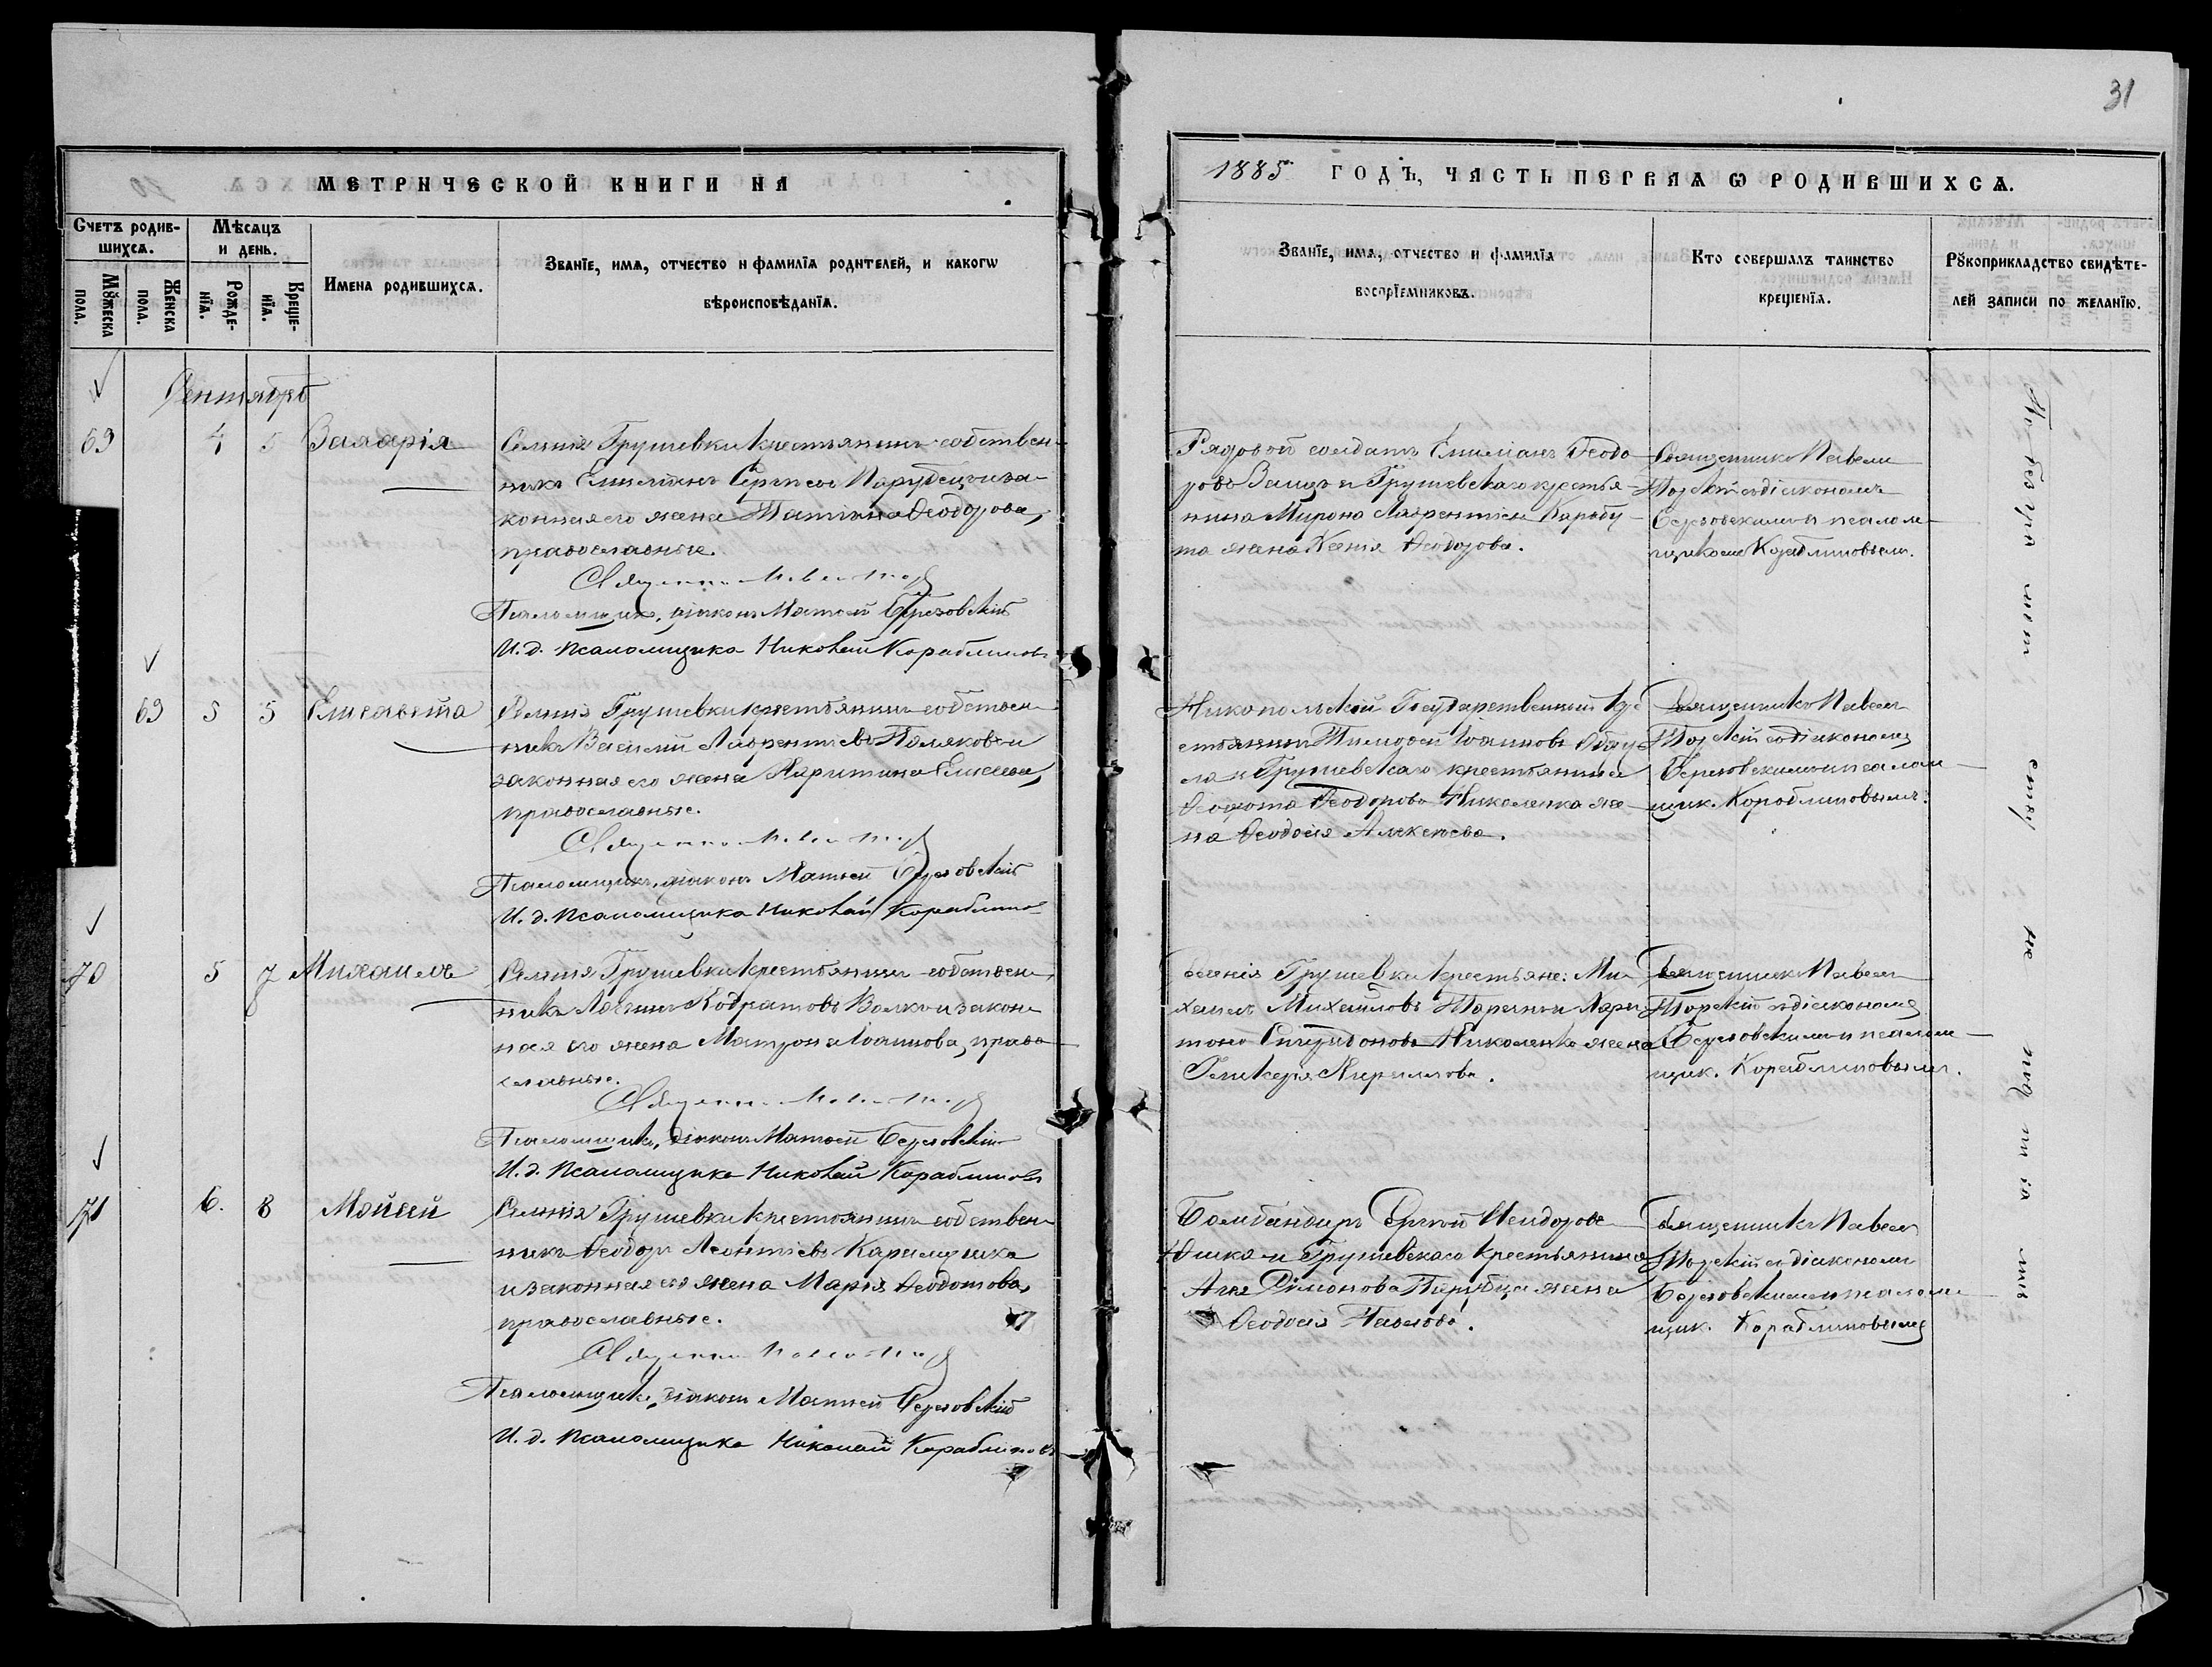 31
МЕТРИЧЕСКОЙ КНИГИ НА
1885 ГОДЪ, ЧАСТЬ ПЕРВАЯ Ѡ РОДИВШИХСѦ.
Счетъ родив-
шихсѧ.
Мѣсѧцъ
и день.
Имена родившихсѧ.
Званїе, имѧ, отчество и фамилїѧ родителей, и какогѡ
вѣроисповѣданїѧ.
Мꙋжеска
пола.
Женска
пола.
Рожде-
нїѧ.
Креще-
нїѧ.
Званїе, имѧ, отчество и фамилїѧ
воспрїемниковъ.
Кто совершалъ таинство
крещенїѧ.
Рꙋкоприкладство свидѣте-
лей записи по желанїю.
Сентябрь
69 4 5 Захарія
Селенія Грушевки крестьянинъ-собствен-
никъ Емиліанъ Сергіевъ Парубецъ и за-
конная его жена Татіана Ѳеодорова,
православные.
Псаломщикъ, діаконъ Матѳей Березовскій
И. д. псаломщика Николай Кораблиновъ
Рядовой солдатъ Емиліанъ Ѳеодо-
ровъ Заицъ и Грушевскаго крестья-
нина Мирона Лаврентіева
жена Ксенія Ѳеодорова.
Священникъ Павелъ
Торскій съ діакономъ
Березовскимъ и псалом-
щикомъ Кораблиновымъ.
69 5 5 Елисавета
Селенія Грушевки крестьянинъ-собствен-
никъ Василій Лаврентіевъ Поляковъ и
законная его жена Харитина Елисеева,
православные.
Псаломщикъ, діаконъ Матѳей Березовскій
И. д. псаломщика Николай Кораблинов
Никопольскій Государственный кре-
стьянинъ Тимоѳей Іоанновъ
и Грушевскаго крестьянина
Ѳеодота Ѳеодорова Николенка же-
на Ѳеодосія Алексѣева.
Священникъ Павелъ
Торскій съ діакономъ
Березовскимъ и псалом-
щик. Кораблиновымъ.
70 5 7 Михаилъ
Селенія Грушевки крестьянинъ-собствен-
никъ Логинъ Кодратовъ Волкъ и закон-
ная его жена Матрона Іоаннова, право-
славные.
Псаломщикъ, діаконъ Матѳей Березовскій
И. д. псаломщика Николай Кораблиновъ
Селенія Грушевки крестьяне: Ми-
хаилъ Михаиловъ Таранъ и Хари-
тона Спиридонова Николенка жена
Гликерія Кириллова.
Священникъ Павелъ
Торскій съ діакономъ
Березовскимъ и псалом-
щик. Кораблиновымъ.
71 6. 8 Моѵсей
Селенія Грушевки крестьянинъ-собствен-
никъ Ѳеодоръ Леонтіевъ Карамушка
и законная его жена Марія Ѳеодотова,
православные.
Псаломщикъ, діаконъ Матѳей Березовскій
И. д. псаломщика Николай Кораблиновъ
Бомбандиръ Сергѣй Исидоровъ
Юшка и Грушевскаго крестьянина
Симонова Парубца жена
Ѳеодосія Павлова.
Священникъ Павелъ
Торскій съ діакономъ
Березовскимъ и псалом-
щик. Кораблиновымъ